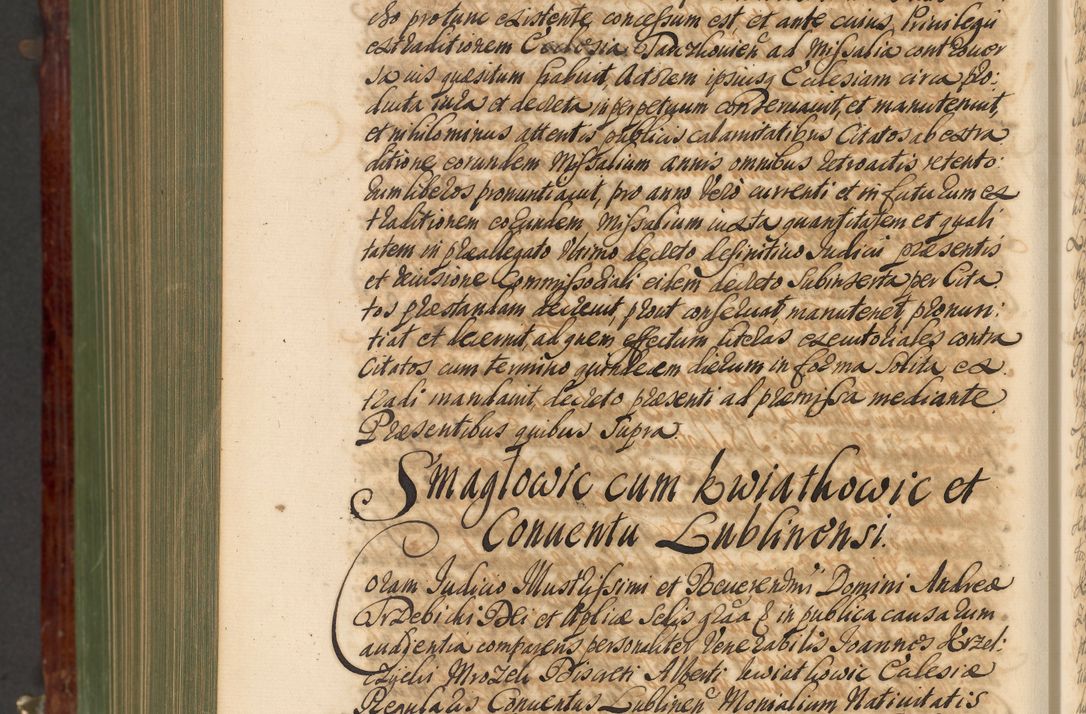 cho protunc existente, concessum est, et ante cuius Privilegii
extraditionem Ecclesia Tanczkovien ad Missalia controver
sa ius quæsitum habuit, Actorem ipsiusq Ecclesiam circa pro:
ducta iura et decreta, in perpetuum conservavit, et manutenuit,
et nihilominus attentis publicis calamitatibus Citatos ab extra
ditione eorundem Missalium annis omnibus retroactis retento:
rum liberos pronuntiavit, pro anno Vero currenti et in futurum ex
traditionem eorundem Missalium iuxta quantitatem et quali
tatem in præallegato Ultimo decreto definitivo Iudicii præsentis
et revisione Commissoriali eidem decreto Subinserta per Cita
tos præstandam decrevit, prout conservat, manutenet, pronun:
tiat et decernit, ad quem effectum literas executoriales contra
Citatos cum termino quindecem dierum in forma Solita ex
tradi mandavit, decreto præsenti ad præmissa mediante
Præsentibus quibus Supra.
Smagłowic cum kwiatkowic et
Conventu Lublinensi.
Coram Iudicio Illustrissimi et Reverendmi Domini Andreæ
Trzebicki Dei et Aplicæ Sedis graa & in publica causarum
audientia comparens personaliter Venerabilis Joannes Krzel:
czycki Mrozek Discreti Alberti kwiatkowic Ecclesiæ
Regularis Conventus Lublinen Monialium Nativitatis